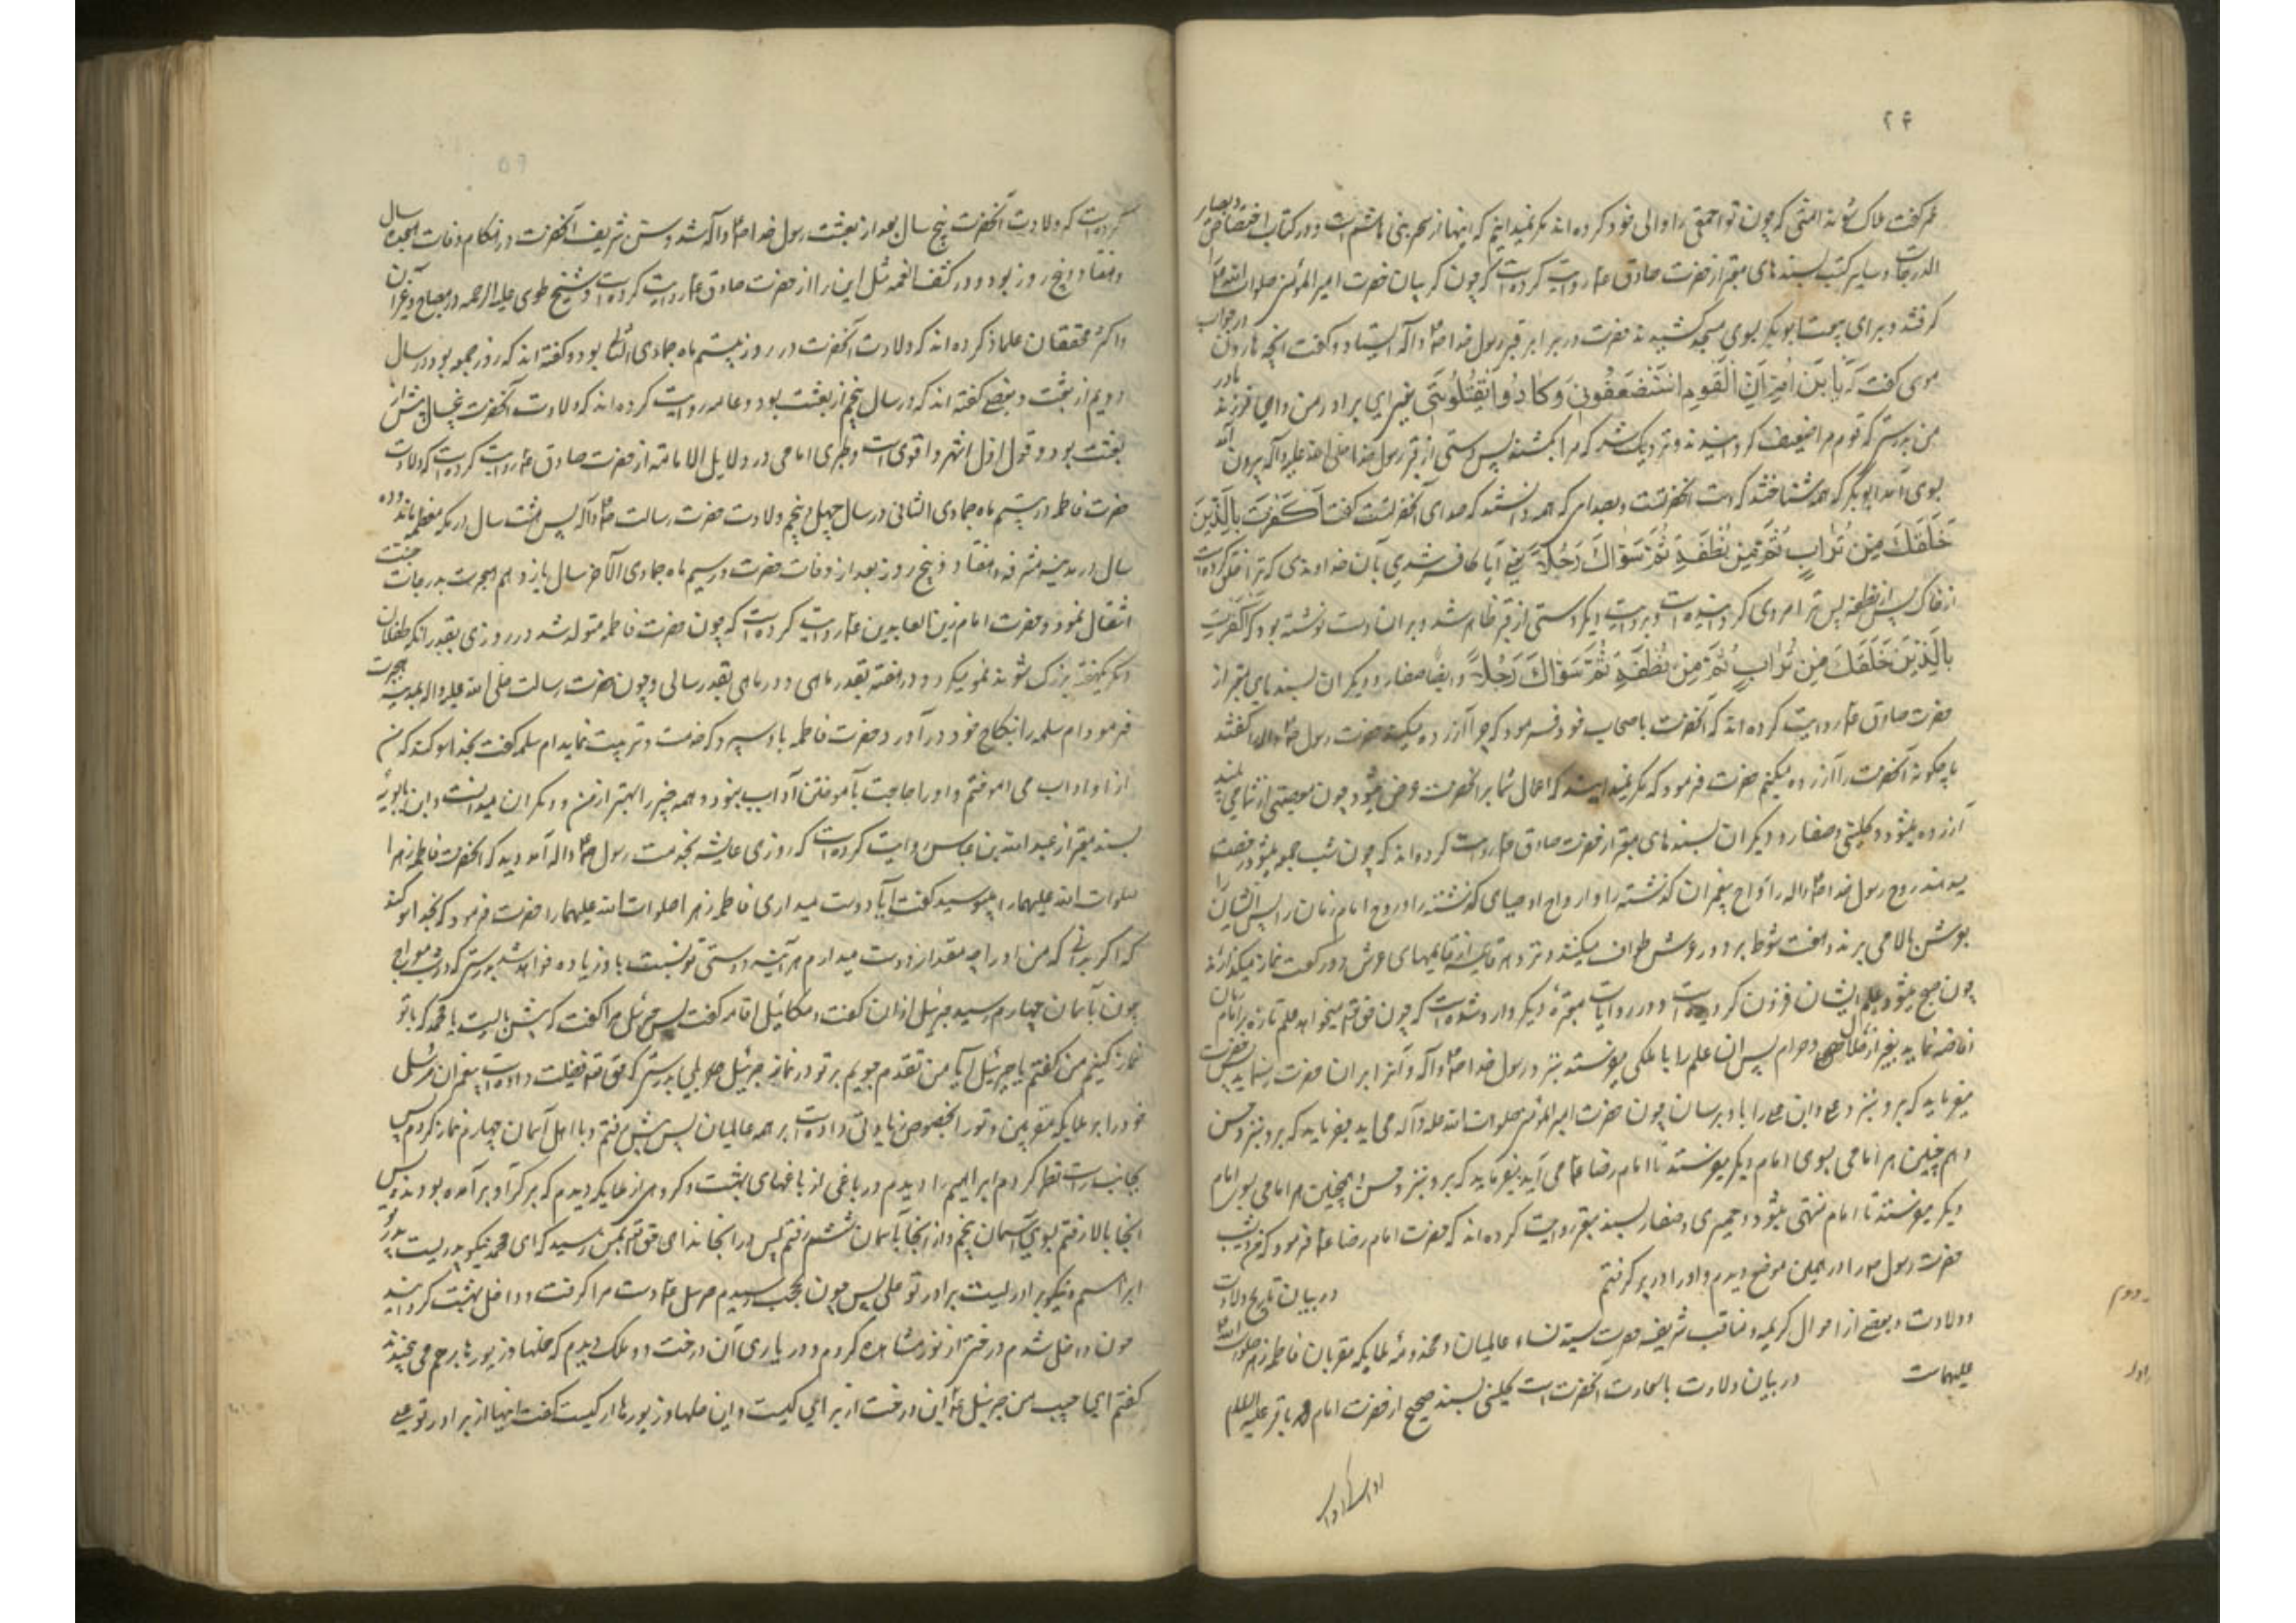 ۲۴
عمر گفت هلاک شوند امتی که چون تو احمقی را والی خود کرده اند مگر نمیدانیم که اینها از سحر بنی هاشم است و در کتاب اختصاص و بصایر
الدرجات و سایر کتب بسندهای معتبر از حضرت صادق ع روایت کرده است که چون گریبان حضرت امیر المؤمنین صلوات الله علیه
گرفتند و برای بیعت ابوبکر بسوی مسجد کشیدند حضرت در برابر قبر رسول خدا ص و آله ایستاد و گفت آنچه هارون در جواب
موسی گفت که یَا بْنَ اُمِّ اِنَّ الْقَوْمَ اسْتَضْعَفُونِی وَکَادُوا یَقْتُلُونَنِی یعنی ای برادر من و ای فرزند مادر
من بدرستی که قوم مرا ضعیف گردانیدند و نزدیک شد که مرا بکشند پس دستی از قبر رسول خدا صلی الله علیه و آله بیرون آمد
بسوی ابوبکر که همه شناختند که دست آنحضرتست و بصدای که همه دانستند که صدای آنحضرتست گفت اَکَفَرْتَ بِالَّذِی
خَلَقَکَ مِنْ تُرَابٍ ثُمَّ مِنْ نُطْفَةٍ ثُمَّ سَوَّاکَ رَجُلاً یعنی آیا کافر شدی بآن خداوندی که ترا خلق کرده است
از خاک پس از نطفه پس ترا مردی گردانیده است و بروایت دیگر دستی از قبر ظاهر شد و بر آن دست نوشته بود که اکفرت
بِالَّذِی خَلَقَکَ مِنْ تُرَابٍ ثُمَّ مِنْ نُطْفَةٍ ثُمَّ سَوَّاکَ رَجُلاً و ایضا صفار و دیگران بسندهای معتبر از
حضرت صادق ع روایت کرده اند که آنحضرت باصحاب خود فرمود که چرا آزرده میکنید حضرت رسول ص و آله را گفتند
ما چگونه آنحضرت را آزرده میکنیم حضرت فرمود که مگر نمیدانید که اعمال شما بر آنحضرت عرض میشود چون معصیتی از شما می بیند
آزرده میشود و کلینی و صفار و دیگران بسندهای معتبر از حضرت صادق ع روایت کرده اند که چون شب جمعه میشود رخصت
میدهند روح رسول خدا ص و اله را و ارواح پیغمبران گذشته را و ارواح اوصیای گذشته را و روح امام زمان را پس ایشان را
بعرش بالا می برند و هفت شوط بر دور عرش طواف میکنند و نزد هر قایمه از قایمهای عرش دو رکعت نماز میگذارند
چون صبح میشود علم ایشان فزون گردیده است و در روایات معتبره دیگر وارد شده است که چون حق تعالی میخواهد علم تازه بر امام زمان
افاضه نماید بغیر از حلال و حرام پس آن علم را با ملکی میفرستد بنزد رسول خدا ص و آله و آنرا بر آن حضرت میرساند پس حضرت
میفرماید که برو بنزد علی و این علم را باو برسان چون حضرت امیر المؤمنین صلوات الله علیه و آله می آید میفرماید که برو بنزد حسن
و همچنین هر امامی بسوی امام دیگر میفرستد تا امام رضا ع می آید میفرماید که برو بنزد حسن و همچنین هر امامی بسوی امام
دیگر میفرستد تا امام منتهی میشود و حمیری و صفار بسند معتبر روایت کرده اند که حضرت امام رضا ع فرمود که من دیشب
حضرت رسول ص را در همین موضع دیدم و او را در بر گرفتم در بیان تاریخ ولادت
و ولادت و بعضی از احوال کریمه و مناقب شریفه حضرت سیده نساء عالمیان و مخدومه ملایکه مقربان فاطمه زهرا صلوات الله
علیهاست در بیان ولادت باسعادت آنحضرت است کلینی بسند صحیح از حضرت امام محمد باقر علیه السلام
۵۶
کرده است که ولادت آنحضرت پنج سال بعد از بعثت رسول خدا ص و آله شد و سن شریف آنحضرت در هنگام وفات هیجده سال
و هفتاد و پنج روز بود و در کشف الغمه مثل این را از حضرت صادق ع روایت کرده است و شیخ طوسی علیه الرحمه در مصباح و غیر آن
و اکثر محققان علما ذکر کرده اند که ولادت آنحضرت در روز بیستم ماه جمادی الثانی بود و گفته اند که روز جمعه بود در سال
دویم از بعثت و بعضی گفته اند که در سال پنجم از بعثت بود و عامه روایت کرده اند که ولادت آنحضرت پنجسال پیش از
بعثت بود و قول اول اشهر و اقوی است و طبری امامی در دلایل الامامه از حضرت صادق ع روایت کرده است که ولادت
حضرت فاطمه در بیستم ماه جمادی الثانی در سال چهل و پنجم ولادت حضرت رسالت ص و آله پس هشت سال در مکه معظمه ماند و ده
سال در مدینه مشرفه و هفتاد و پنج روز بعد از وفات حضرت و در سیم ماه جمادی الآخر سال یازدهم هجرت بدرجات جنت
انتقال نمود و حضرت امام زین العابدین ع روایت کرده است که چون حضرت فاطمه متولد شد در روزی بقدر آنکه طفلان
دیگر بهفته بزرگ شوند نمو میکرد و در هفته بقدر ماهی و در ماهی بقدر سالی و چون حضرت رسالت صلی الله علیه و اله بمدینه هجرت
فرمود ام سلمه را بنکاح خود در آورد و حضرت فاطمه باو سپرد که خدمت و تربیت نماید ام سلمه گفت بخدا سوگند که من
از او اداب می اموختم و او را حاجت بآموختن آداب نبود و همه چیز را بهتر از من و دیگران میدانست و ابن بابویه
بسند معتبر از عبد الله بن عباس روایت کرده است که روزی عایشه بخدمت رسول ص و اله آمد و دید که آنحضرت فاطمه زهرا
صلوات الله علیهما را میبوسید گفت آیا دوست میداری فاطمه زهرا صلوات الله علیهما را حضرت فرمود که بخدا سوگند
که اگر بدانی که من او را چه مقدار دوست میدارم هر آینه دوستی تو نسبت باو زیاده خواهد شد بدرستی که در شب معراج
چون بآسمان چهارم رسیدم جبرئیل اذان گفت و میکائیل اقامه گفت پس جبرئیل مرا گفت که پیش بایست یا محمد که با تو
نماز کنیم من گفتم یا جبرئیل آیا من تقدم جویم بر تو در نماز جبرئیل گفت بلی بدرستی که حق تعالی فضیلت داده است پیغمبران مرسل
خود را بر ملایکه مقربین و تو را بخصوص زیادتی داده است بر همه عالمیان پس پیش رفتم و با اهل آسمان چهارم نماز کردم پس
بجانب راست نظر کردم ابراهیم را دیدم در باغی از باغهای بهشت و گروهی از ملایکه دیدم که بر گرد او بر آمده بودند پس
آنجا بالا رفتم بسوی آسمان پنجم و از آنجا بآسمان ششم رفتم پس در آنجا ندا می حق تعالی بمن رسید که ای محمد نیکو پدریست پدر تو
ابراهیم و نیکو برادریست برادر تو علی پس چون بحجب رسیدم جبرئیل ع دست مرا گرفت و داخل بهشت گردانید
چون داخل شدم درختی از نور مشاهده کردم و در پای آن درخت دو ملک دیدم که حلها و زیورها بر هم می چینند
گفتم ای حبیب من جبرئیل این درخت از برای کیست و این حلها و زیورها از کیست گفت اینها از برادر تو علی